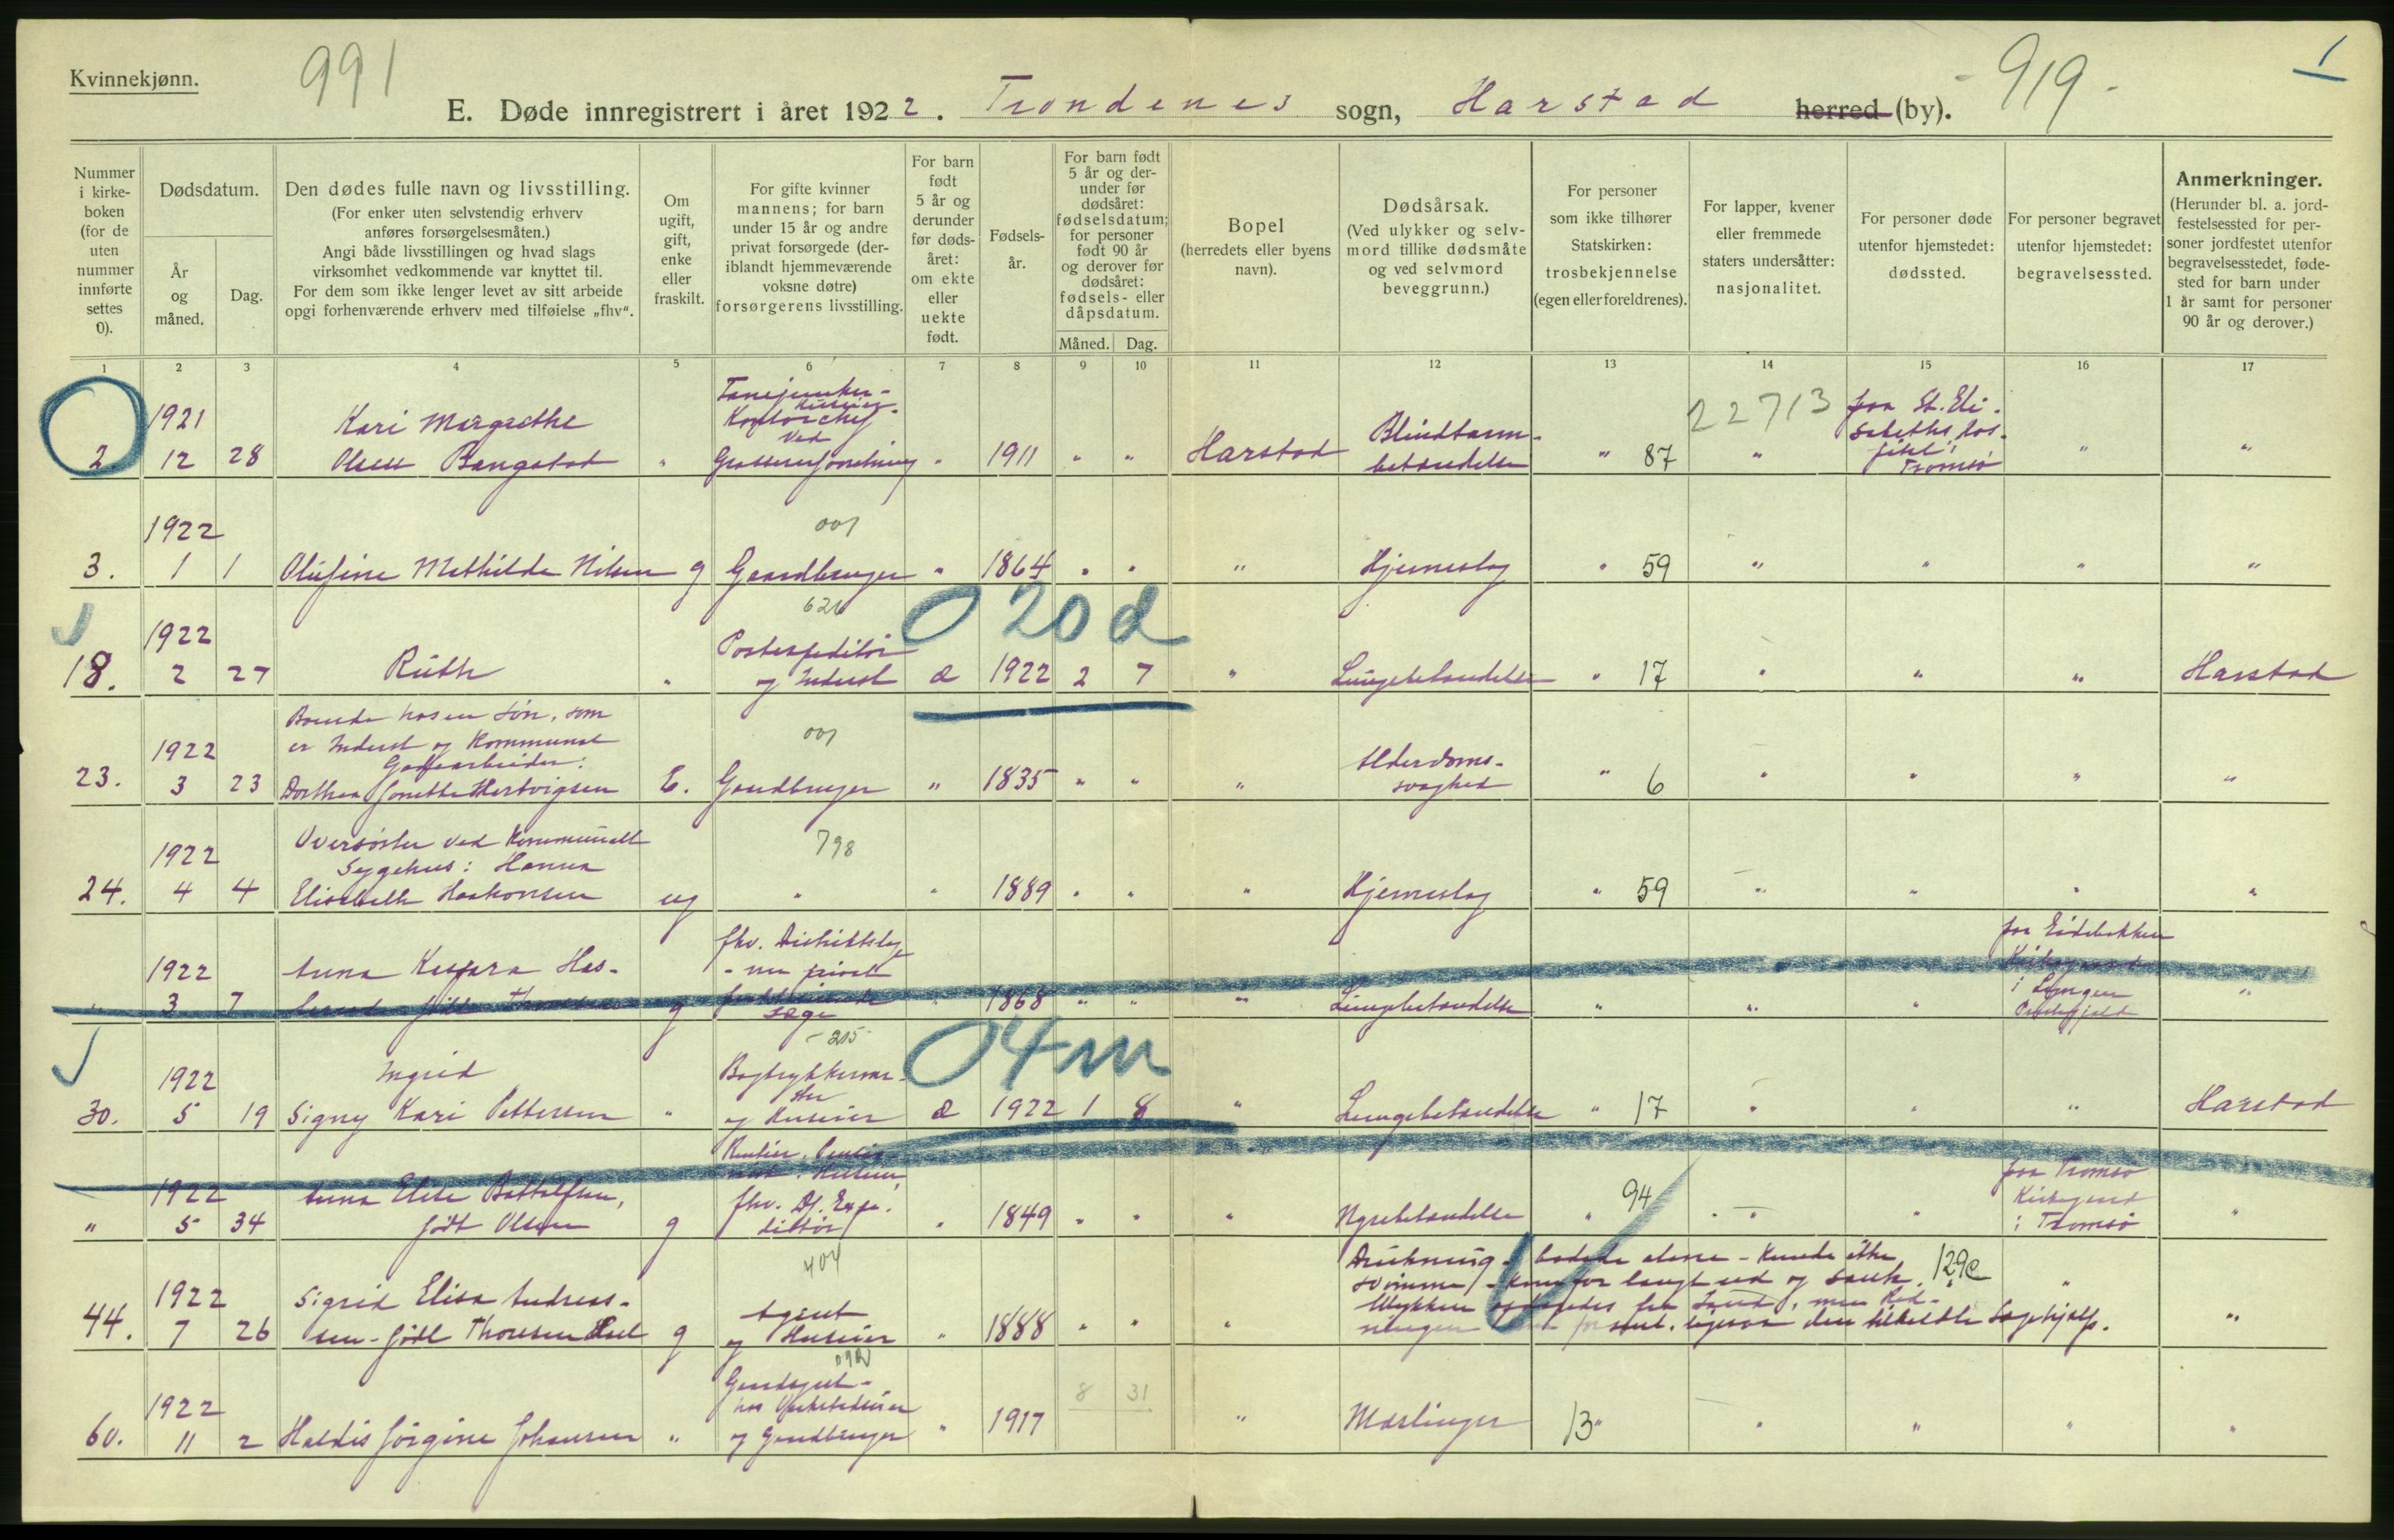 Kvinnekjønn.
991
E. Døde innregistrert i året 1922. Trondenes sogn, Harstad herred (by).
- 919 -
1
Nummer i kirkeboken (for de uten nummer innførte settes 0).
Dødsdatum.
År og måned.
Dag.
Den dødes fulle navn og livsstilling.
(For enker uten selvstendig erhverv anføres forsørgelsesmåten.)
Angi både livsstillingen og hvad slags virksomhet vedkommende var knyttet til.
For dem som ikke lenger levet av sitt arbeide opgi forhenværende erhverv med tilføielse „fhv“.
Om ugift, gift, enke eller fraskilt.
For gifte kvinner mannens; for barn under 15 år og andre privat forsørgede (deriblandt hjemmeværende voksne døtre) forsørgerens livsstilling.
For barn født 5 år og derunder før dødsåret: om ekte eller uekte født.
Fødselsår.
For barn født 5 år og derunder før dødsåret: fødselsdatum; for personer født 90 år og derover før dødsåret: fødsels- eller dåpsdatum.
Måned. Dag.
Bopel (herredets eller byens navn).
Dødsårsak. (Ved ulykker og selvmord tillike dødsmåte og ved selvmord beveggrunn.)
For personer som ikke tilhører Statskirken: trosbekjennelse (egen eller foreldrenes).
For lapper, kvener eller fremmede staters undersåtter: nasjonalitet.
For personer døde utenfor hjemstedet: dødssted.
For personer begravet utenfor hjemstedet: begravelsessted.
Anmerkninger. (Herunder bl. a. jordfestelsessted for personer jordfestet utenfor begravelsesstedet, fødested for barn under 1 år samt for personer 90 år og derover.)
1 2 3 4 5 6 7 8 9 10 11 12 13 14 15 16 17
1921 Kari Margrethe Kontorchef Blindtarm- 22713 paa St. Eli-
ved sabeths hos-
2 12 28 Olsen Bangstad " Grossererforretning " 1911 " " Harstad betændelse " 87 " pital i " "
Tromsø
1922 001
3. 1 1 Olufine Mathilde Nilsen g Gaardbruger " 1864 " " " Hjerneslag " 59 " " " "
626 0 20 d
1922 Postexpeditør
18. 2 27 Ruth " og Inderst æ 1922 2 7 " Lungebetændelse " 17 " " " Harstad
Boende hos en søn, som
1922 er Inderst og Kommunal 001 Alderdoms-
Gassarbeider:
23. 3 23 Dorthea Jonette Hertvigsen E. Gaardbruger " 1835 " " " svaghed " 6 " " " "
Oversøster ved Kommunalt 798
1922 Sygehus: Hanna
24. 4 4 Elisabeth Haakonsen ug " " 1889 " " " Hjerneslag " 59 " " " "
fhv. Distriktslæge paa
1922 Anna Kaspara Has- - nu privat Kirkegaard
" 3 7 g " 1868 " " " Lungebetændelse " " " i Lyngen "
Læge
- 205 0 4 m
1922 Ingrid Bogtrykkerme-
ster
30. 5 19 Signy Kari Pettersen " og Huseier æ 1922 1 8 " Lungebetændelse " 17 " " " Harstad
Rentier,
1922 Anna Elise fhv. 94 paa Tromsø
Kirkegaard
" 5 34 født Olsen g " 1849 " " " Nyrebetændelse " " " i Tromsø "
404 Drukning - badede alene - kunde ikke 129e
1922 Sigrid Elisa Andreas- Agent svømme - kom for langt ud og sank. "
44. 7 26 sen - født Thoresen g og Huseier " 1888 " " " Ulykken fra Land, men Red-
ningen for sent, ligesaa den tilkaldte Lægehjælp. "
Gaardsgut-
1922 hos 8 31
60. 11 2 Haldis Jørgine Johansen " og Gaardbruger " 1917 " Mæslinger 13 " " " " "